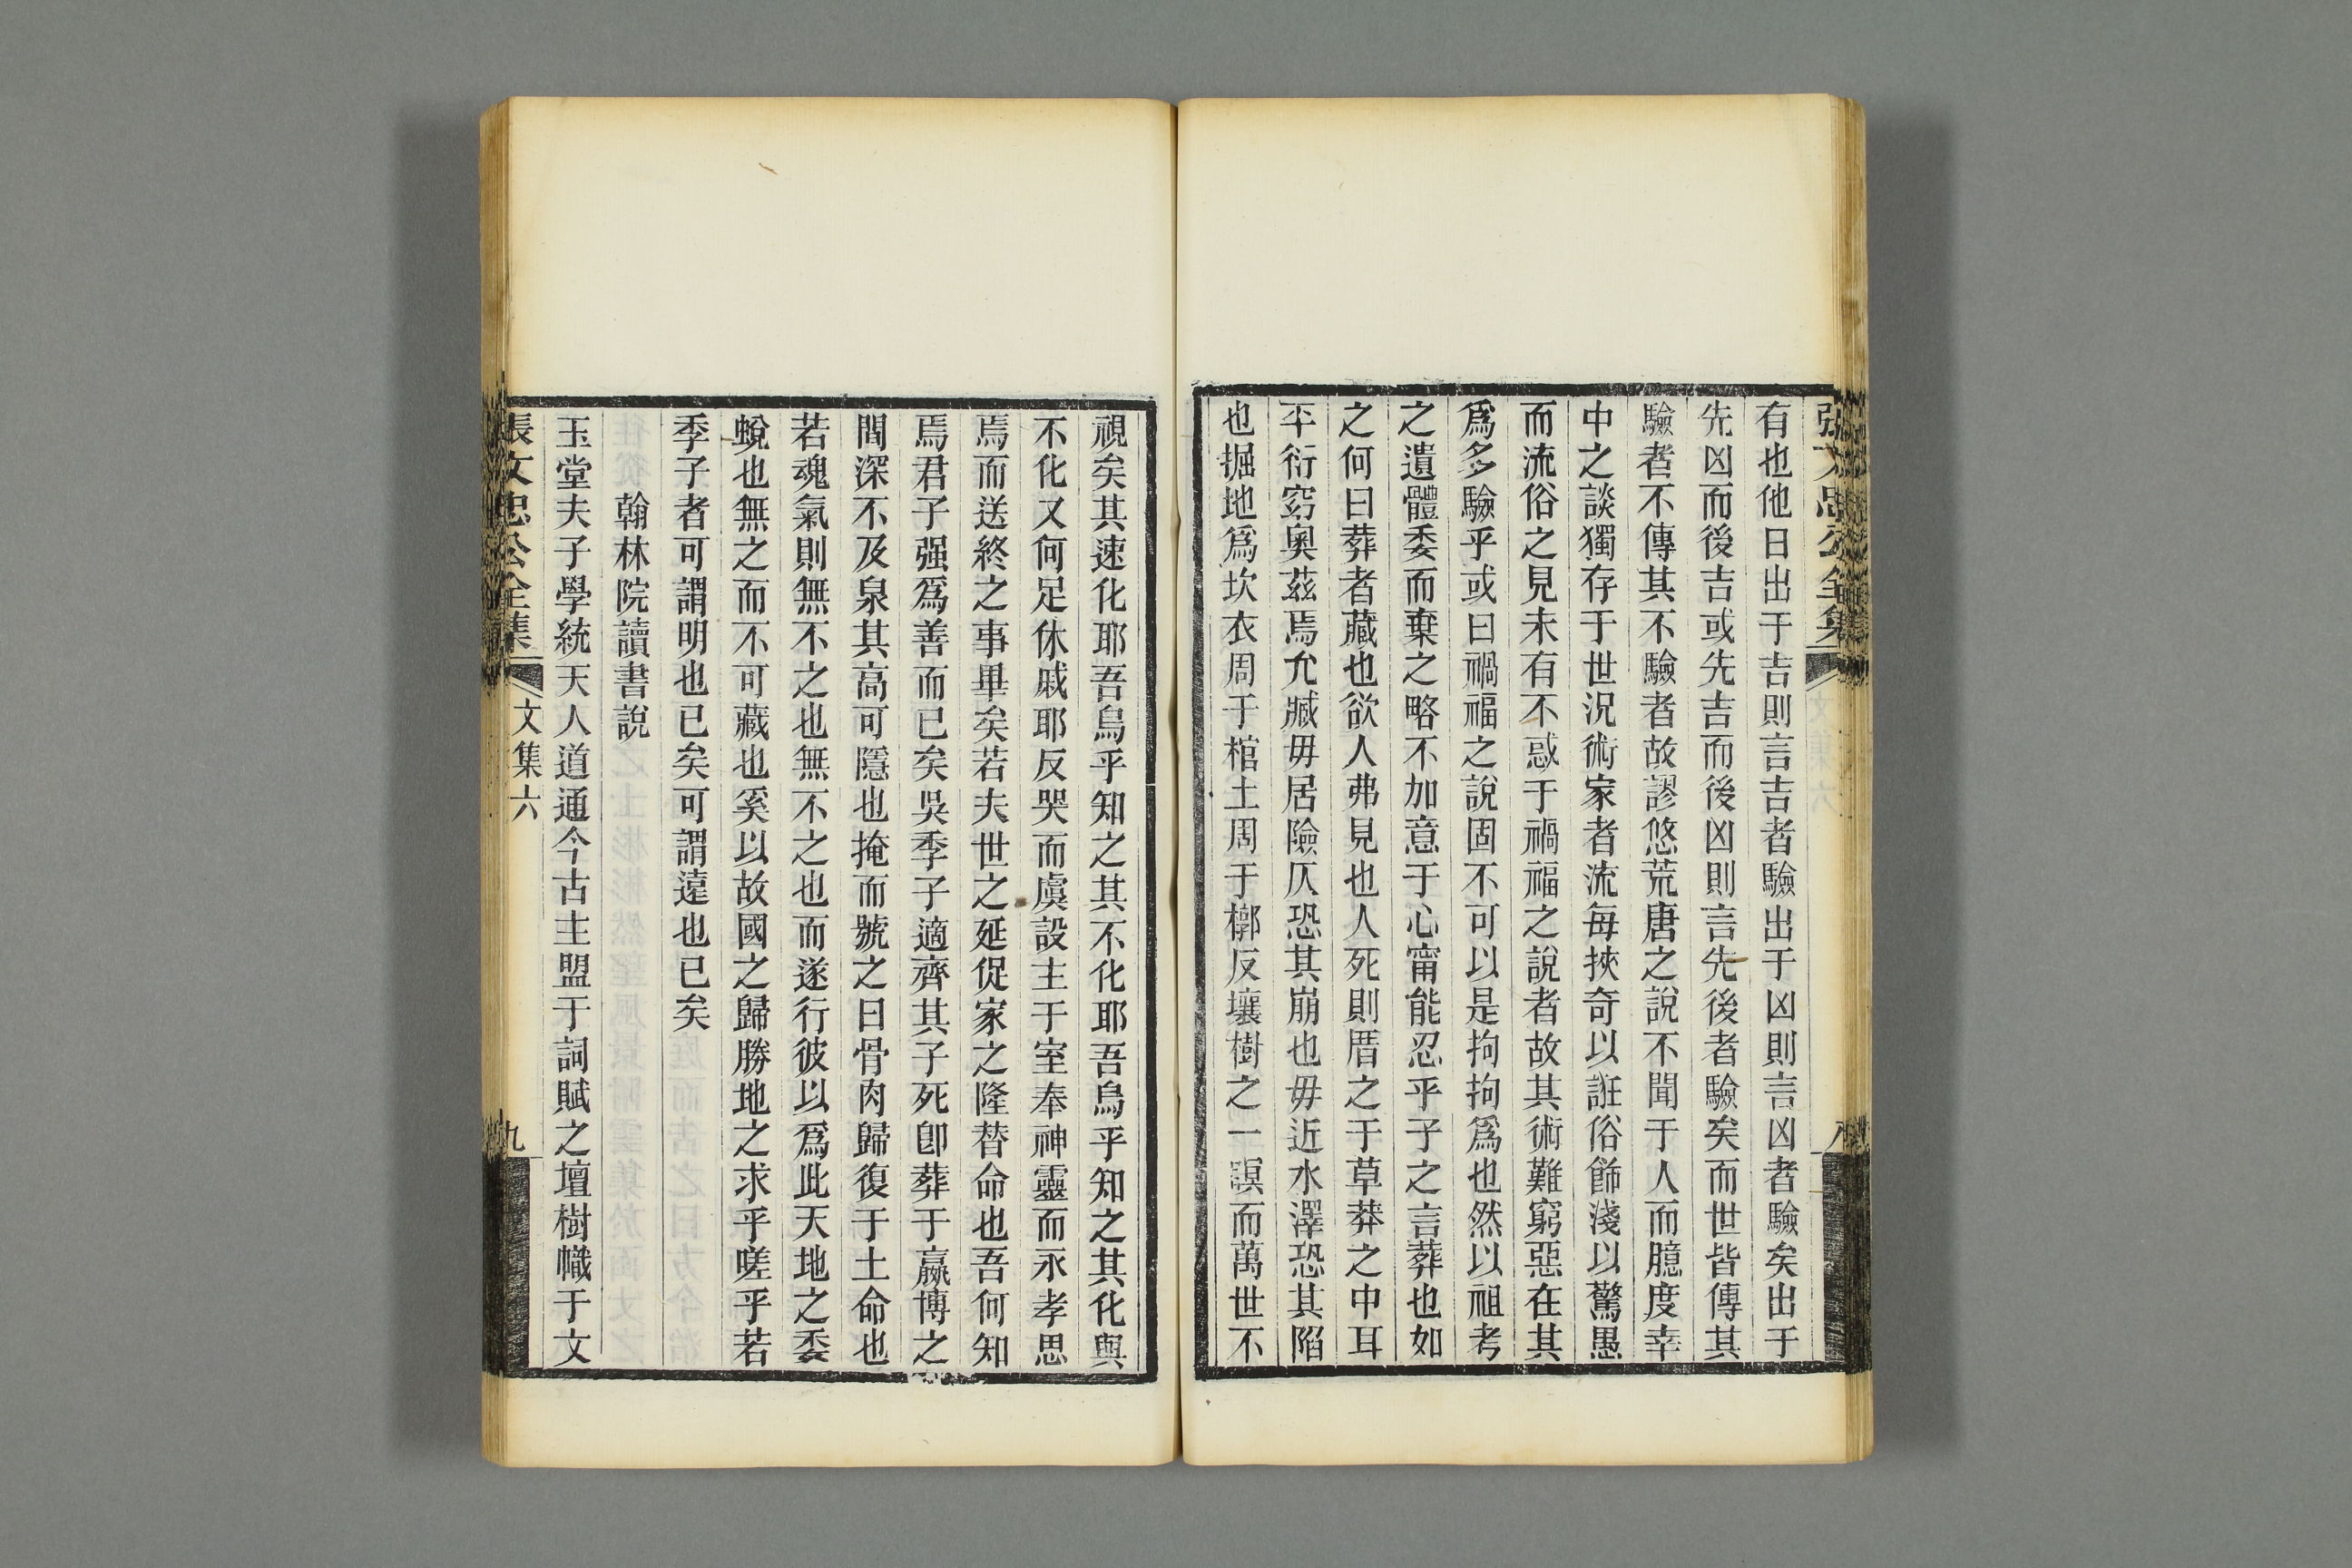 張文忠公全集
八
有也他日出于吉則言吉者驗出于凶則言凶者驗矣出于
先凶而後吉或先吉而後凶則言先後者驗矣而世皆傳其
驗者不傳其不驗者故謬悠荒唐之說不聞于人而臆度幸
中之談獨存于世況術家者流每挾奇以誑俗飾淺以驚愚
而流俗之見未有不惑于禍福之說者故其術難窮惡在其
爲多驗乎或曰禍福之說固不可以是拘拘爲也然以祖考
之遺體委而棄之略不加意于心甯能忍乎子之言葬也如
之何曰葬者藏也欲人弗見也人死則厝之于草莽之中耳
平衍窈奧茲焉允臧毋居險仄恐其崩也毋近水澤恐其陷
也掘地爲坎衣周于棺土周于槨反壤樹之一瞑而萬世不
視矣其速化耶吾烏乎知之其不化耶吾烏乎知之其化與
不化又何足休戚耶反哭而虞設主于室奉神靈而永孝思
焉而送終之事畢矣若夫世之延促家之隆替命也吾何知
焉君子强爲善而已矣吳季子適齊其子死卽葬于嬴博之
間深不及泉其高可隱也掩而號之曰骨肉歸復于土命也
若魂氣則無不之也無不之也而遂行彼以爲此天地之委
蛻也無之而不可藏也奚以故國之歸勝地之求乎嗟乎若
季子者可謂明也已矣可謂遠也已矣
翰林院讀書說
玉堂夫子學統天人道通今古主盟于詞賦之壇樹幟于文
張文忠公全集
文集六
九